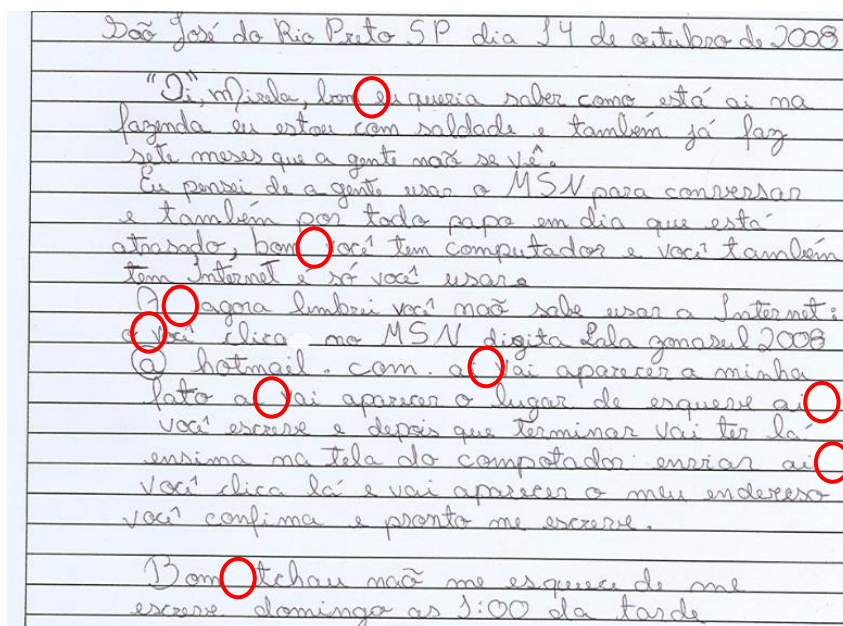 São José do Rio Preto SP dia 14 de outubro de 2008
"Oi", Mirela, bom eu queria saber como está ai na
fazenda eu estou com saldade e também já faz
sete meses que a gente naõ se vê.
Eu pensei de a gente usar o MSN para conversar
e também por todo papo em dia que está
atrasado, bom você tem computador e você também
tem Internet é só você usar.
A agora limbrei você naõ sabe usar a Internet:
o você clica no MSN digita Lala gonasul 2008
@ hotmail. com. ai vai aparecer a minha
fato ai vai aparecer o lugar de esqueve ai
você escreve e depois que terminar vai ter lá
ensima na tela do compotador enviar ai
você clica lá e vai aparecer o meu endereso
você confima e pronto me escreve.
Bom tchau naõ me esquece de me
escreve domingo as 1:00 da tarde